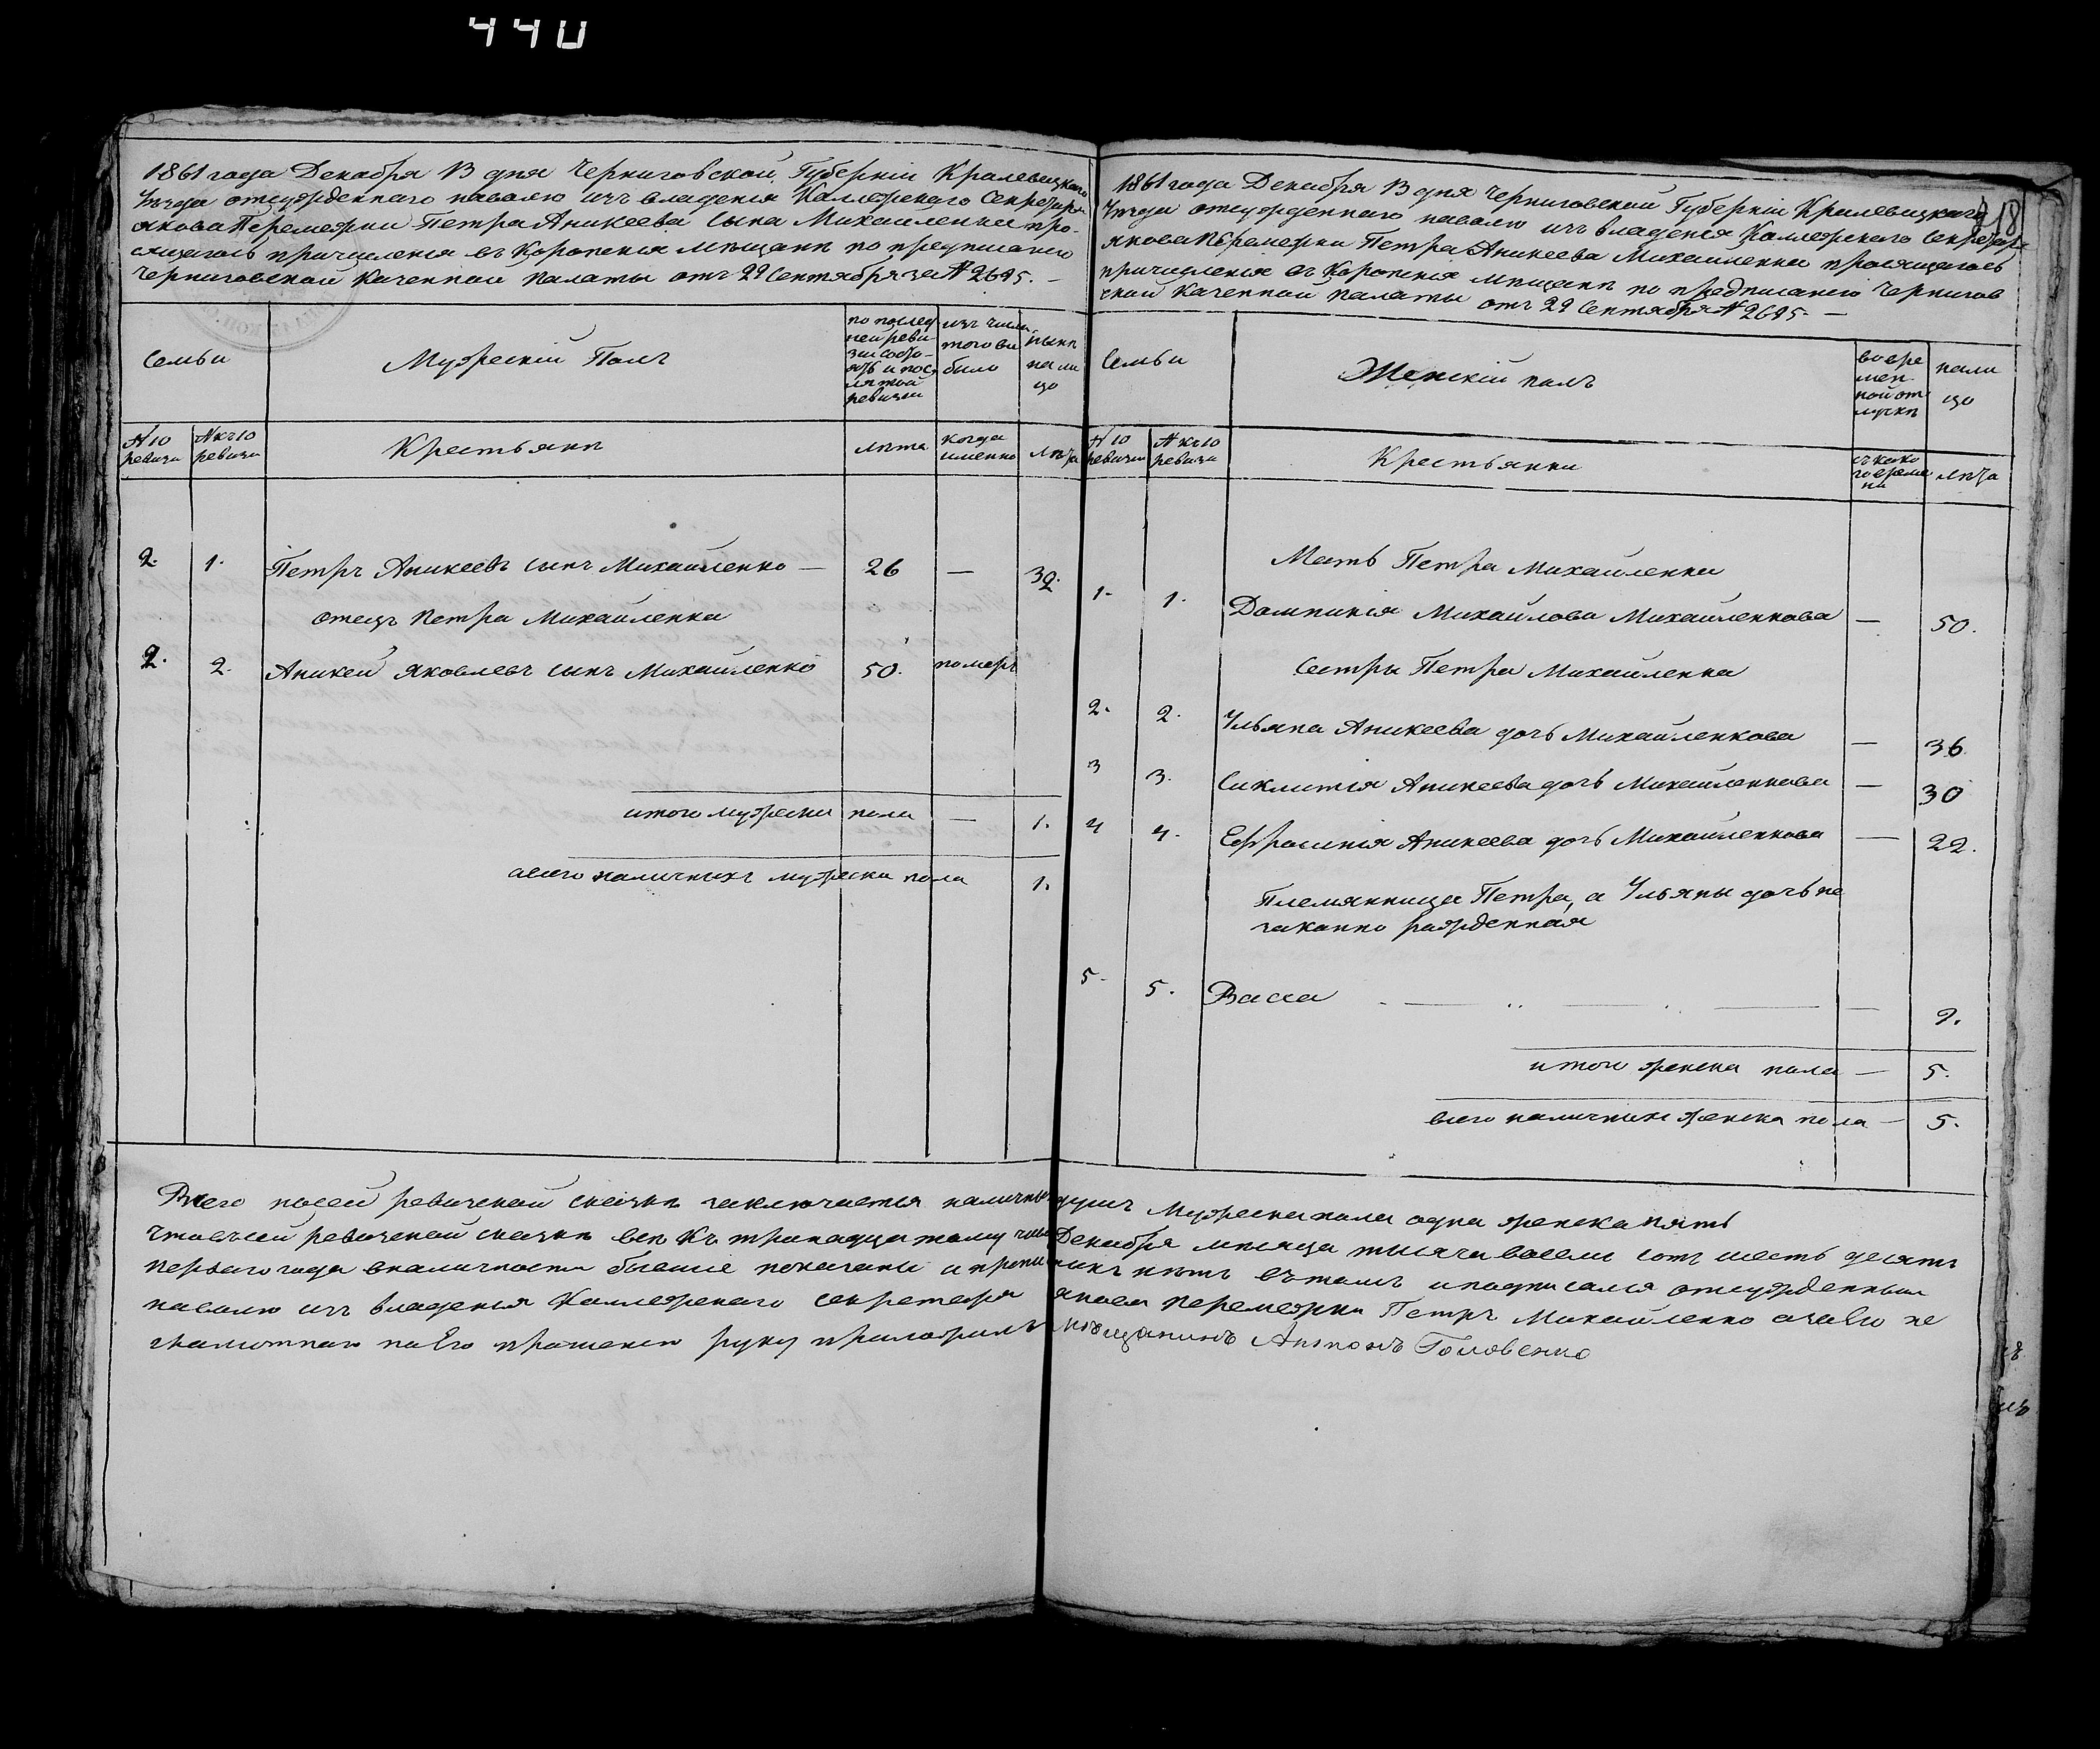 440
1861 года Декабря 13 дня Черниговской Губерніи Кролевецкаго
Уезда отсужденнаго наволю изъ владенія Коллежскаго Секретаря
Якова Перемежки Петра Аникеева сына Михайленка про-
сящагось причисленія въ Коропскія мѣщане по предписанію
Черниговской Казенной Палаты отъ 22 Сентября за № 2695. —
Семьи
Мужескій Полъ
по послед
ней реви
зіи состо-
ялъ и пос
ля той
ревизіи
изъ числа
того вы
было
нынѣ
на ли
цо
№ 10
ревизи
№ къ 10
ревизи
Крестьяне
лѣта
когда
именно
лѣта
2. 1. Петръ Аникеевъ сынъ Михайленко — 26 — 32.
отецъ Петра Михайленка
2. 2. Аникей Яковлевъ сынъ Михайленко 50. померъ
итого мужеска пола — 1.
всего наличныхъ мужеска пола 1.
1861 года Декабря 13 дня Черниговской Губерніи Кролевецкаго
Уезда отсужденнаго наволю изъ владенія Коллежскаго Секретаря
Якова Перемежки Петра Аникеева Михайленка просящагось
причисленія въ Коропскія мѣщане по предписанію Чернигов
ской Казенной Палаты отъ 22 Сентября № 2695 —
18
Семьи
Женскій полъ
во вре
мен
ной от
лучке
нали
цо
№ 10
ревизіи
№ къ 10
ревизи
Крестьянки
съ како
го време
ни
лѣта
Мать Петра Михайленка
1. 1. Домникія Михайлова Михайленкова — 50.
Сестры Петра Михайленка
2. 2. Ульяна Аникеева дочь Михайленкова — 36.
3 3. Сиклитія Аникеева дочь Михайленкова — 30
4 4. Ефросинія Аникеева дочь Михайленкова — 22.
Племянница Петра, а Ульяны дочь не
законно рожденная
5. 5. Васса — 9.
итого женска пола — 5.
всего наличныхъ женска пола — 5.
Всего на сей ревизской сказкѣ заключается наличныхъ душъ Мужеска пола одна женска пять
Что въ сей ревизской сказке все къ тринадцатому числу Декабря месяца тысяча восемь сотъ шесть десятъ
перваго года в наличности бывшіе показаны и прописныхъ нетъ въ томъ и подписался отсужденный
наволю изъ владенія Коллежскаго Секретаря Якова Перемежки Петръ Михайленко а за Его не
грамотнаго по Его прошенію руку приложилъ мѣщанинъ Антонъ Головенко